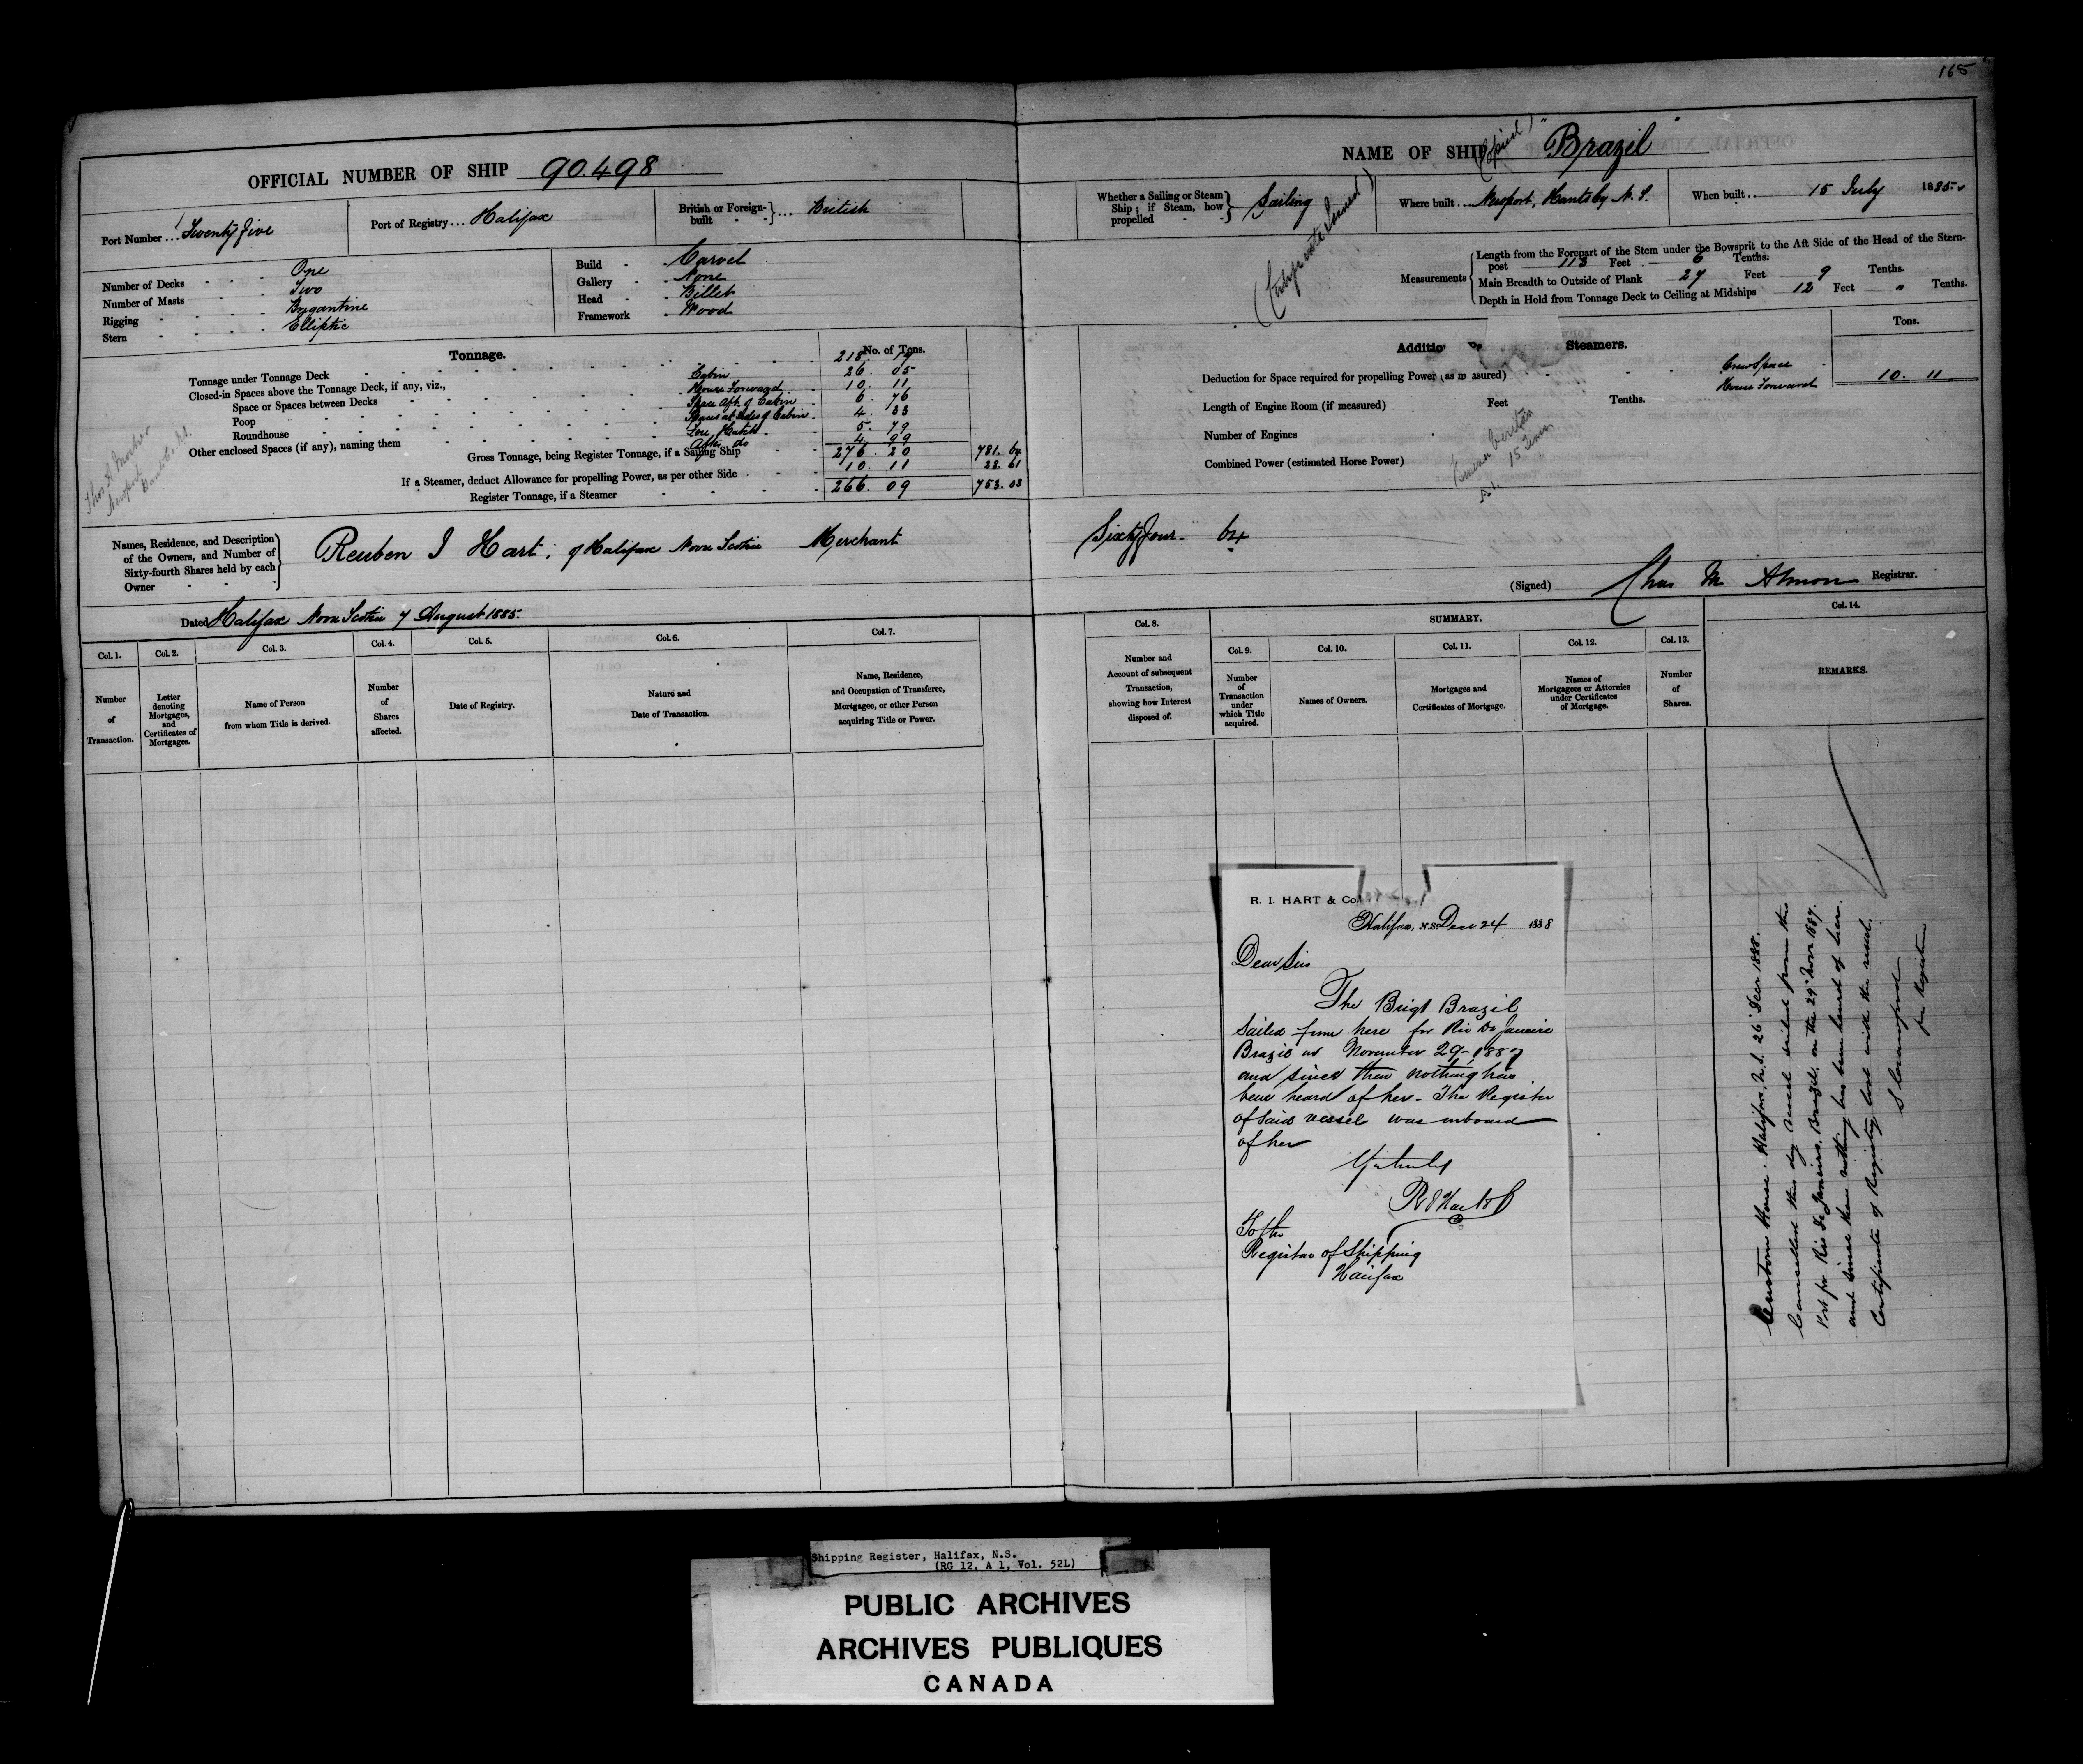 165
OFFICIAL NUMBER OF SHIP 90.498
NAME OF SHIP "Brazil"
(Copied)
(Certificate Issued)
Port Number ... Twenty five
Port of Registry ... Halifax
British or Foreign-built ... British
Whether a Sailing or Steam Ship; if Steam, how propelled Sailing
Where built ... Newport, Hants Co, N.S.
When built ... 15 July 1885
Number of Decks One
Number of Masts Two
Rigging Brigantine
Stern Elliptic
Build Carvel
Gallery None
Head Billet
Framework Wood
Measurements
Length from the Forepart of the Stem under the Bowsprit to the Aft Side of the Head of the Stern-
post 113 Feet 6 Tenths.
Main Breadth to Outside of Plank 27 Feet 9 Tenths.
Depth in Hold from Tonnage Deck to Ceiling at Midships 12 Feet " Tenths.
Tonnage.
No. of Tons.
Tonnage under Tonnage Deck 218. 19
Closed-in Spaces above the Tonnage Deck, if any, viz.,
Space or Spaces between Decks
Poop
Roundhouse
Other enclosed Spaces (if any), naming them
Cabin 26. 05
House Forward 10. 11
Space Aft. of Cabin 6. 76
Spaces at sides of Cabin 4. 33
Fore Hatch 5. 79
After do 4. 99
Gross Tonnage, being Register Tonnage, if a Sailing Ship 276. 20 781. 64
If a Steamer, deduct Allowance for propelling Power, as per other Side 10. 11 28. 61
Register Tonnage, if a Steamer 266. 09 753. 03
Newport
Steamers.
Tons.
Deduction for Space required for propelling Power (as measured)
Crew Space
House Forward 10. 11
Length of Engine Room (if measured) Feet Tenths.
Number of Engines
Combined Power (estimated Horse Power)
A1. 15
Names, Residence, and Description
of the Owners, and Number of
Sixty-fourth Shares held by each
Owner
Reuben I Hart; of Halifax Nova Scotia Merchant
Sixty four - 64
(Signed) Chas M Almon Registrar.
Dated Halifax Nova Scotia 7 August 1885.
SUMMARY.
Col. 1. Col. 2. Col. 3. Col. 4. Col. 5. Col. 6. Col. 7.
Col. 8. Col. 9. Col. 10. Col. 11. Col. 12. Col. 13. Col. 14.
Number of Transaction.
Letter denoting Mortgages, and Certificates of Mortgages.
Name of Person from whom Title is derived.
Number of Shares affected.
Date of Registry.
Nature and Date of Transaction.
Name, Residence, and Occupation of Transferee, Mortgagee, or other Person acquiring Title or Power.
Number and Account of subsequent Transaction, showing how Interest disposed of.
Number of Transaction under which Title acquired.
Names of Owners.
Mortgages and Certificates of Mortgage.
Names of Mortgagees or Attornies under Certificates of Mortgage.
Number of Shares.
REMARKS.
R. I. HART & Co.
Halifax, N.S. Dec 24 1888
Dear Sir
The Brigt Brazil
sailed from here for Rio De Janeiro
Brazil on November 29 - 1887
and since then nothing has
been heard of her - The Register
of said vessel was onboard
of her
Yrs truly
R I Hart & Co
To the
Registrar of Shipping
Halifax
Custom House. Halifax. N.S. 26 Decr 1888.
Cancelled this day vessel sailed from this
Port for Rio De Janeiro, Brazil, on the 29" Novr 1887.
and since then nothing has been heard of her.
Certificate of Registry lost with the vessel.
for Registrar
Shipping Register, Halifax, N.S.
(RG 12, A 1, Vol. 52L)
PUBLIC ARCHIVES
ARCHIVES PUBLIQUES
CANADA